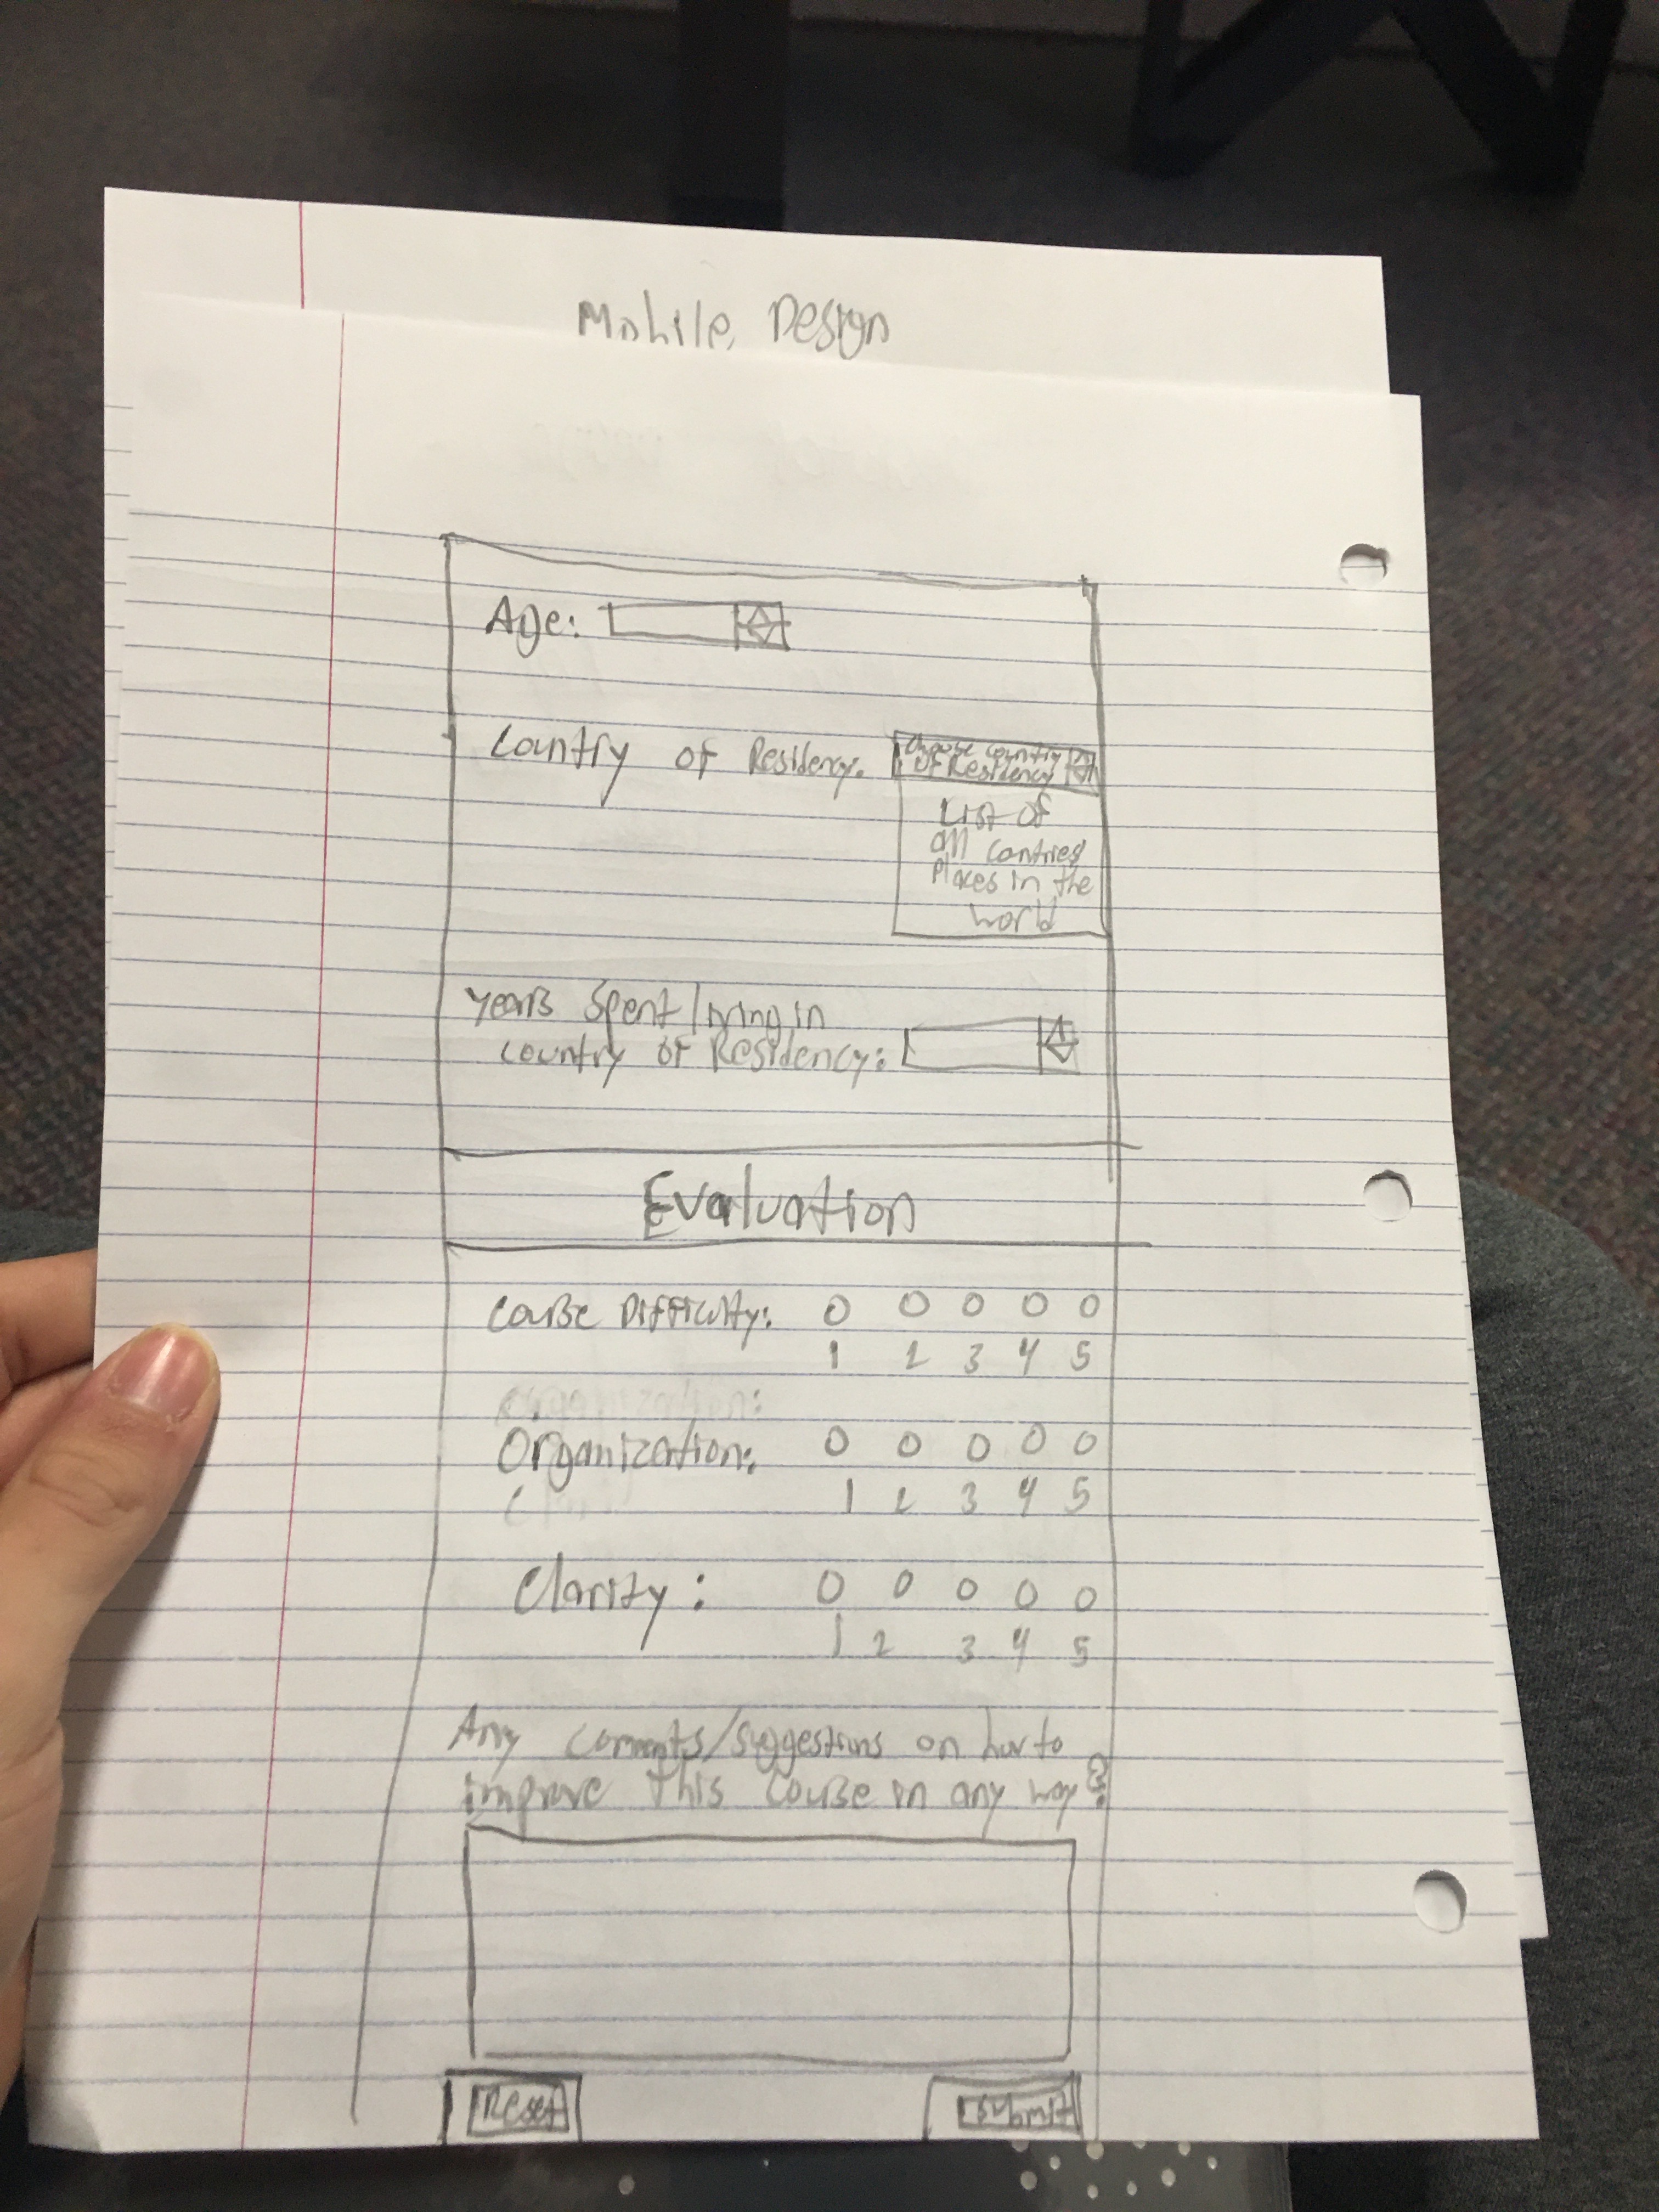 Mobile Design
Age:
Country of Residency:
Choose Country
of Residency
List of
all Contries
Places in the
world
Years Spent/living in
Country of Residency:
Evaluation
Course Difficulty:
1 2 3 4 5
Organization:
1 2 3 4 5
Clarity:
1 2 3 4 5
Any comments/suggestions on how to
improve this course in any way?
Reset
Submit